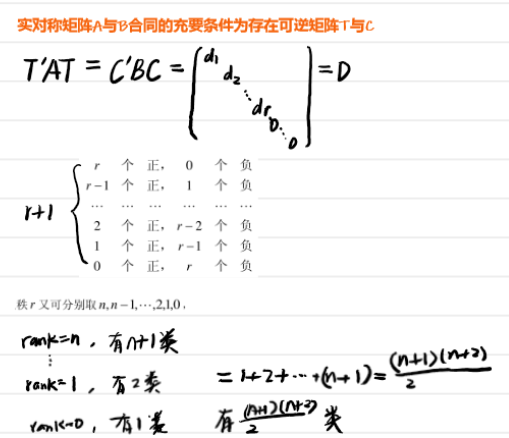 实对称矩阵A与B合同的充要条件为存在可逆矩阵T与C
T'AT = C'BC = (d1 d2 ⋱ dr 0 ⋱ 0) = D
r 个 正， 0 个 负
r-1 个 正， 1 个 负
… … … … … …
r+1
2 个 正， r-2 个 负
1 个 正， r-1 个 负
0 个 正， r 个 负
秩 r 又可分别取 n, n-1, ⋯, 2, 1, 0 ，
rank=n ，有n+1类
⋮
rank=1 ，有2类 = 1+2+⋯+(n+1) = (n+1)(n+2)/2
rank=0 ，有1类 有 (n+1)(n+2)/2 类